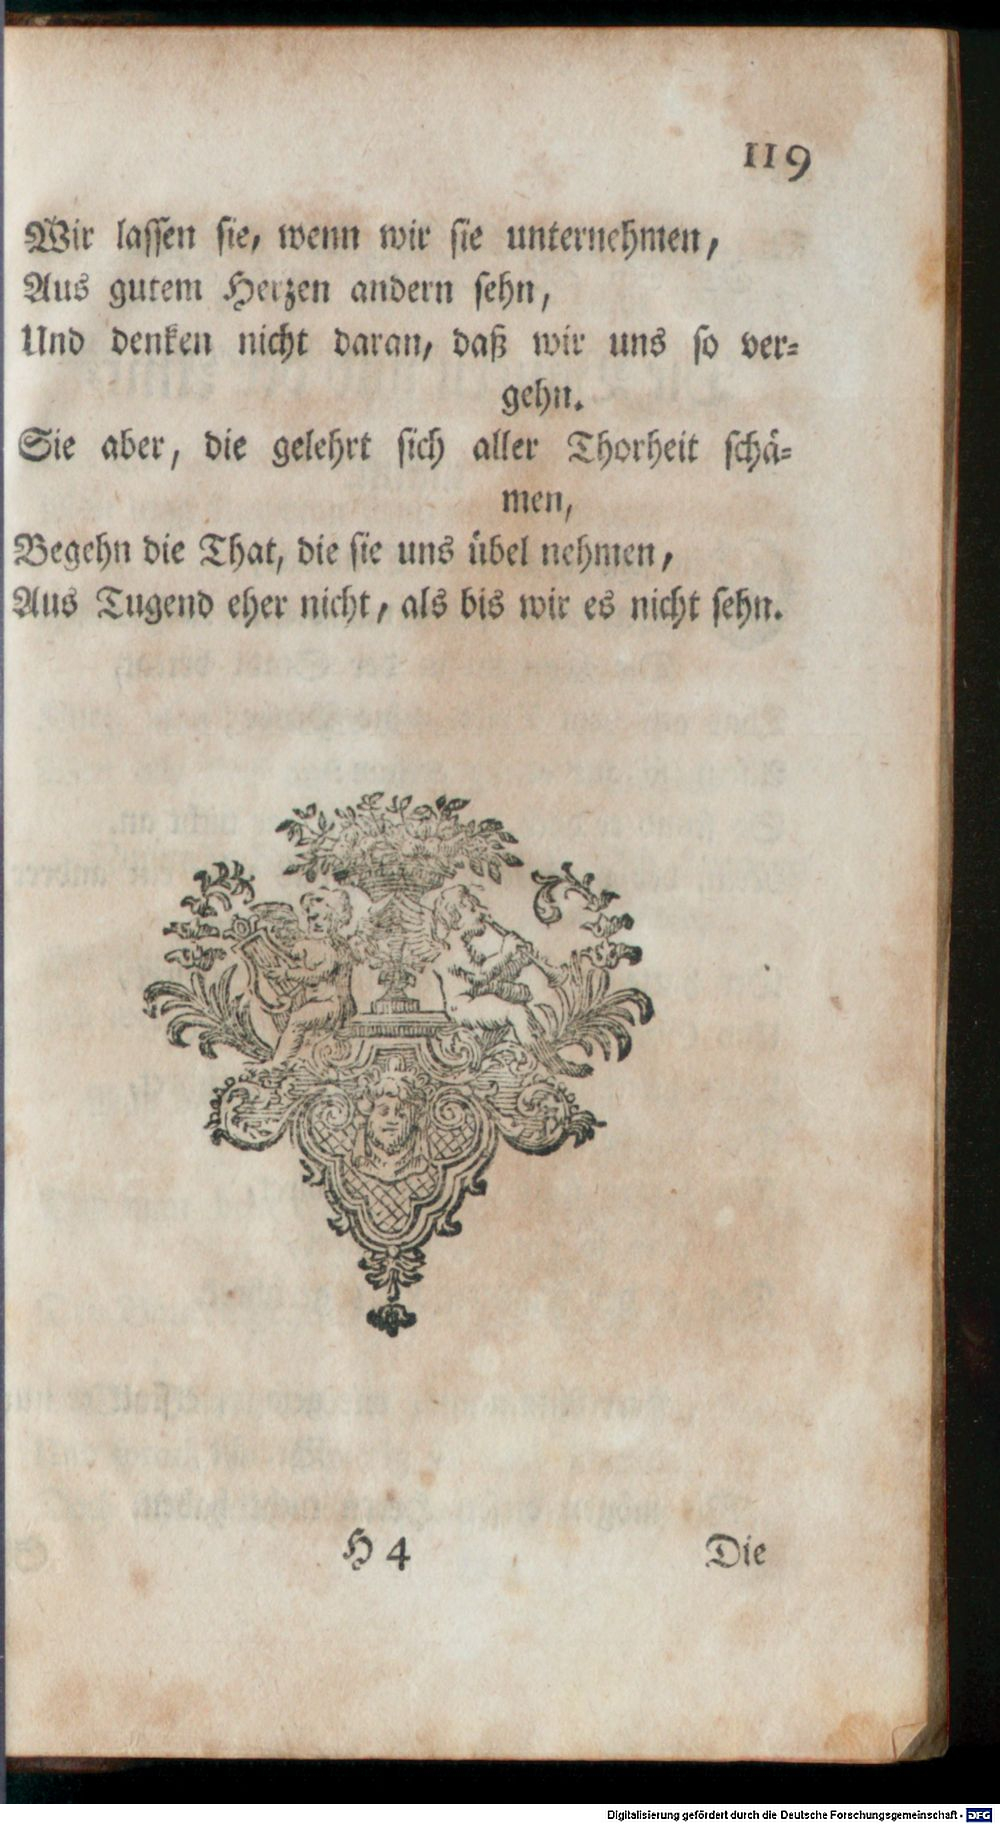 119
Wir lassen sie, wenn wir sie unternehmen,
Aus gutem Herzen andern sehn,
Und denken nicht daran, daß wir uns so ver-
gehn.
Sie aber, die gelehrt sich aller Thorheit schä-
men,
Begehn die That, die sie uns übel nehmen,
Aus Tugend eher nicht, als bis wir es nicht sehn.
H 4 Die
Digitalisierung gefördert durch die Deutsche Forschungsgemeinschaft - DFG